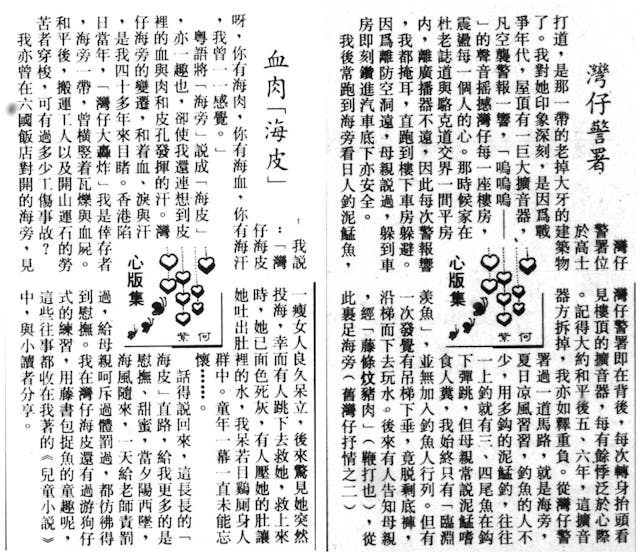 灣仔警署
灣仔
警署位
於高士
打道，是那一帶的老掉大牙的建築物
了。我對她印象深刻，是因爲戰
爭年代，屋頂有一巨大擴音器，
凡空襲警報一響，「嗚嗚嗚——
」的聲音搖撼灣仔每一座樓房，
震盪每一個人的心。那時候家在
杜老誌道與駱克道交界一間平房
內，離廣播器不遠，因此每次警報響
，我都掩耳，直跑到樓下車房躲避。
因爲離防空洞遠，母親說過，躲到車
房即刻鑽進汽車底下亦安全。
我後常跑到海旁看日人釣泥鯭魚，
灣仔警署即在背後，每次轉身抬頭看
見樓頂的擴音器，每有餘悸泛於心際
。記得大約和平後五、六年，這擴音
器方拆掉，我亦如釋重負。從灣仔警
署過一道馬路，就是海旁，
夏日凉風習習，釣魚的人不
少，用多鈎的泥鯭釣，往往
一上釣就有三、四尾魚在鈎
下彈跳，但母親常說泥鯭嗜
食人糞，我始終只有「臨淵
羨魚」，並無加入釣魚人行列。但有
一次發覺有吊梯下垂，竟脫剩底褲，
沿梯而下去玩水。後來有人告知母親
，經「藤條炆豬肉」（鞭打也），從
此裹足海旁（舊灣仔抒情之二）
心版集
何紫
血肉「海皮」
我說
：「灣
仔海皮
呀，你有海肉，你有海血，你有海汗
，我曾一一感覺。」
粵語將「海旁」說成「海皮」
，亦一趣也，卻使我還連想到皮
裡的血與肉和皮孔發揮的汗。灣
仔海旁的變遷，和着血、淚與汗
，是我四十多年來目睹。香港陷
日當年，「灣仔大轟炸」我是倖存者
，海旁一帶，曾橫竪着瓦爍與血屍。
和平後，搬運工人以及開山運石的勞
苦者穿梭，可有過多少工傷事故？
我亦曾在六國飯店對開的海旁，見
一瘦女人良久呆立，後來驚見她突然
投海，幸而有人跳下去救她，救上來
時，她已面色死灰，有人壓她的肚讓
她吐出肚裡的水，我呆若日鷄厠身人
群中。童年一幕一直未能忘
懷……。
話得說回來，這長長的「
海皮」直路，給我更多的是
慰撫、甜蜜，當夕陽西墜，
海風隨來，一天給老師責罰
過，給母親呵斥過體罰過，都彷彿得
到慰撫。我在灣仔海皮還有過游狗仔
式的練習，用藤書包捉魚的童趣呢，
這些往事都收在我著的《兒童小說》
中，與小讀者分享。
心版集
何紫